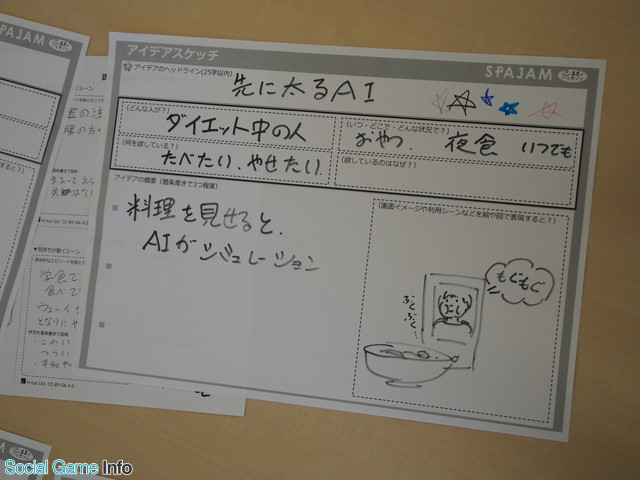 アイデアスケッチ
SPAJAM
アイデアのヘッドライン(25字以内)
先に太るAI
(どんな人が?)
ダイエット中の人
(いつ・どこで・どんな状況で?)
おやつ. 夜食 いつでも
(何を欲している?)
たべたい.やせたい.
(欲しているのはなぜ?)
アイデアの概要(箇条書きで3つ程度)
料理を見せると.
AIがシミュレーション
(画面イメージや利用シーンなどを絵や図で表現すると?)
もぐもぐ
ぷくぷく…
▼気持ちが動くシーン
学食で
食べて
ウェーイ
となりにや
・こわい
・つらい
Social Game Info